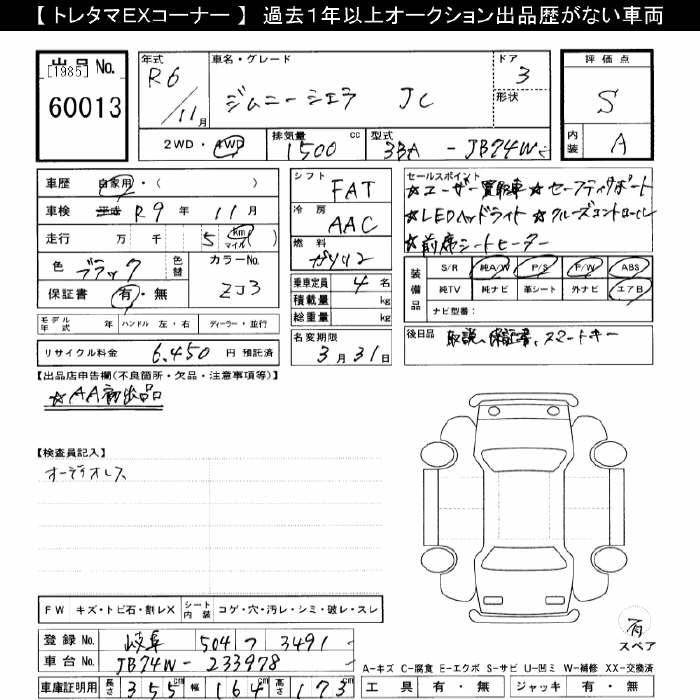 【 トレタマEXコーナー 】 過去１年以上オークション出品歴がない車両
出品 No.
[1985]
60013
年式
R6 / 11月
車名・グレード
ジムニーシエラ JC
ドア
3
形状
評価点
S
内装
A
2WD・4WD
排気量
1500 cc
型式
3BA - JB74W
車歴 自家用・( )
車検 平成 R9 年 11 月
走行 万 千 5 km マイル
色 ブラック
色替
カラーNo.
ZJ3
保証書 有・無
モデル年式 年 ハンドル 左・右 ディーラー・並行
リサイクル料金 6,450 円 預託済
シフト
FAT
冷房
AAC
燃料
ガソリン
乗車定員 4 名
積載量 kg
総重量 kg
名変期限
3月31日
セールスポイント
★ユーザー買取車 ★セーフティサポート
★LEDヘッドライト ★クルーズコントロール
★前席シートヒーター
装備品
S/R 純A/W P/S P/W ABS
純TV 純ナビ 革シート 外ナビ エアB
ナビ型番:
後日品 取説、保証書、スマートキー
【出品店申告欄(不良箇所・欠品・注意事項等)】
☆AA初出品
【検査員記入】
オーディオレス
FW キズ・トビ石・割レX
シート内装 コゲ・穴・汚レ・シミ・破レ・スレ
登録 No. 岐阜 504 フ 3491
車台 No. JB74W - 233978
車庫証明用 長さ 355 cm 幅 164 cm 高さ 173 cm
スペア
A-キズ C-腐食 E-エクボ S-サビ U-凹ミ W-補修 XX-交換済
工具 有・無 ジャッキ 有・無